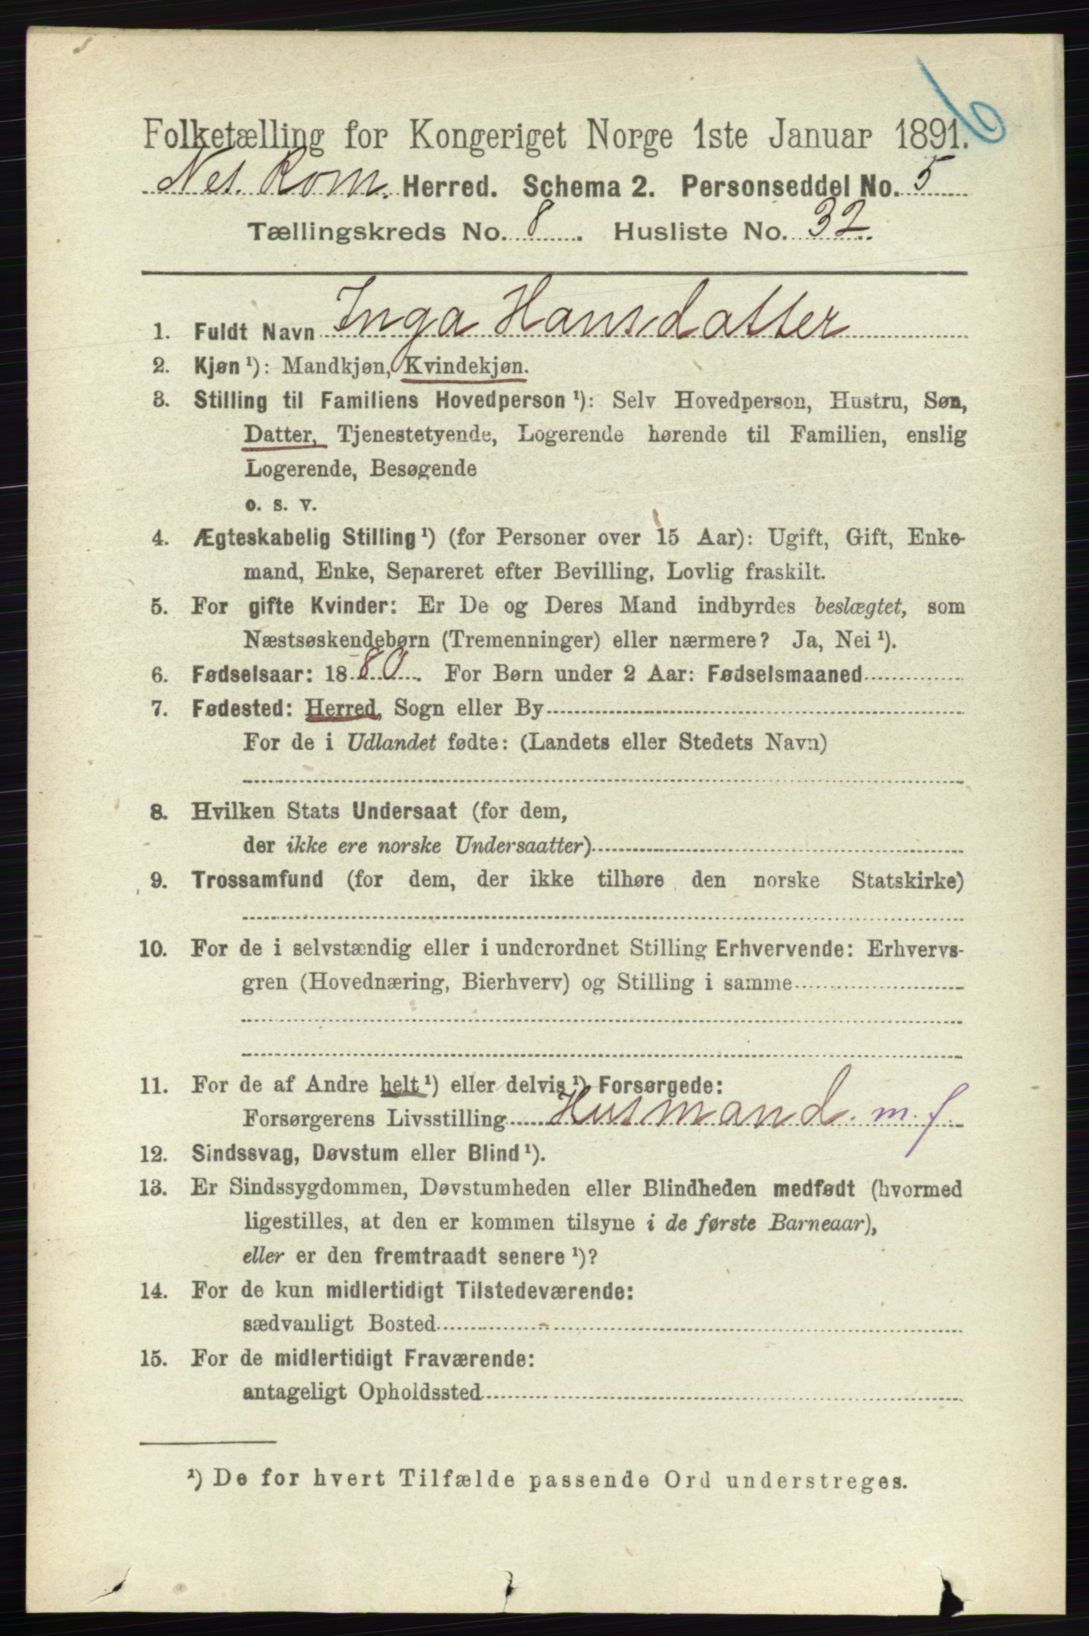 6
Folketælling for Kongeriget Norge 1ste Januar 1891.
Nes. Rom. Herred. Schema 2. Personseddel No. 5
Tællingskreds No. 8. Husliste No. 32.
1. Fuldt Navn Inga Hansdatter
2. Kjøn ¹): Mandkjøn, Kvindekjøn.
3. Stilling til Familiens Hovedperson ¹): Selv Hovedperson, Hustru, Søn,
Datter, Tjenestetyende, Logerende hørende til Familien, enslig
Logerende, Besøgende
o. s. v.
4. Ægteskabelig Stilling ¹) (for Personer over 15 Aar): Ugift, Gift, Enke-
mand, Enke, Separeret efter Bevilling, Lovlig fraskilt.
5. For gifte Kvinder: Er De og Deres Mand indbyrdes beslægtet, som
Næstsøskendebørn (Tremenninger) eller nærmere? Ja, Nei ¹).
6. Fødselsaar: 1880. For Børn under 2 Aar: Fødselsmaaned
7. Fødested: Herred, Sogn eller By
For de i Udlandet fødte: (Landets eller Stedets Navn)
8. Hvilken Stats Undersaat (for dem,
der ikke ere norske Undersaatter)
9. Trossamfund (for dem, der ikke tilhøre den norske Statskirke)
10. For de i selvstændig eller i underordnet Stilling Erhvervende: Erhvervs-
gren (Hovednæring, Bierhverv) og Stilling i samme
11. For de af Andre helt ¹) eller delvis ¹) Forsørgede:
Forsørgerens Livsstilling Husmand. m. f.
12. Sindssvag, Døvstum eller Blind ¹).
13. Er Sindssygdommen, Døvstumheden eller Blindheden medfødt (hvormed
ligestilles, at den er kommen tilsyne i de første Barneaar),
eller er den fremtraadt senere ¹)?
14. For de kun midlertidigt Tilstedeværende:
sædvanligt Bosted
15. For de midlertidigt Fraværende:
antageligt Opholdssted
¹) De for hvert Tilfælde passende Ord understreges.